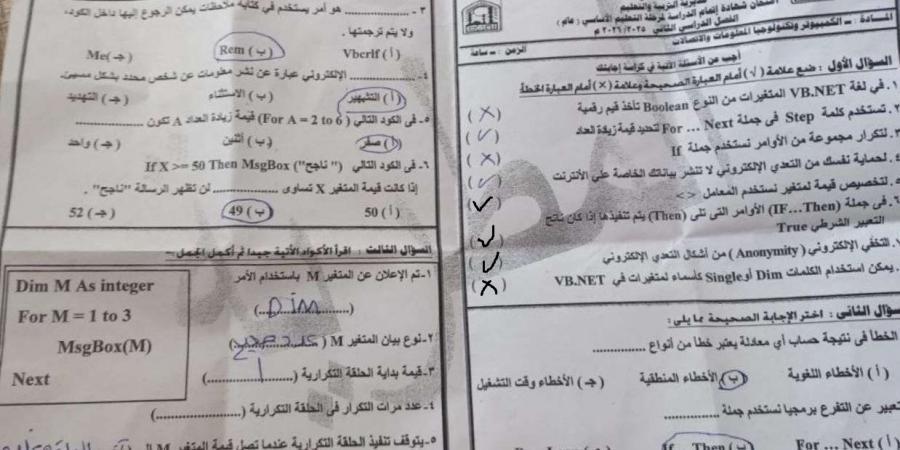 امتحان شهادة إتمام الدراسة لمرحلة التعليم الأساسي ( عام )
الفصل الدراسي الثاني ٢٠٢٥/٢٠٢٦ م
المادة : الكمبيوتر وتكنولوجيا المعلومات والاتصالات
الزمن : ساعة
أجب عن الأسئلة الآتية في كراسة إجابتك
السؤال الأول : ضع علامة (√) أمام العبارة الصحيحة وعلامة (×) أمام العبارة الخطأ
١. في لغة VB.NET المتغيرات من النوع Boolean تأخذ قيم رقمية (×)
٢. تستخدم كلمة Step في جملة For … Next لتحديد قيمة زيادة العداد (✓)
٣. لتكرار مجموعة من الأوامر نستخدم جملة If (×)
٤. لحماية نفسك من التعدي الإلكتروني لا تنشر بياناتك الخاصة على الأنترنت (✓)
٥. لتخصيص قيمة لمتغير نستخدم المعامل <> (✓)
٦. في جملة (IF…Then) الأوامر التى تلى (Then) يتم تنفيذها إذا كان ناتج
التعبير الشرطي True (✓)
٧. التخفي الإلكتروني (Anonymity) من أشكال التعدي الإلكتروني (✓)
يمكن استخدام الكلمات Dim أو Single كأسماء لمتغيرات في VB.NET (×)
السؤال الثاني : اختر الإجابة الصحيحة مما يلي :
الخطأ فى نتيجة حساب أي معادلة يعتبر خطأ من أنواع ..............
(أ) الأخطاء اللغوية (ب) الأخطاء المنطقية (جـ) الأخطاء وقت التشغيل
تعبير عن التفرع برمجيا نستخدم جملة ..............
(أ) For … Next (ب) If… Then
٣- .............. هو أمر يستخدم في كتابة ملاحظات يمكن الرجوع إليها داخل الكود،
ولا يتم ترجمتها .
(أ) Vbcrlf (ب) Rem (جـ) Me
٤- .............. الإلكتروني عبارة عن نشر معلومات عن شخص محدد بشكل مسيئ.
(أ) التشهير (ب) الاستثناء (جـ) التهديد
٥- فى الكود التالي (For A = 2 to 6) قيمة زيادة العداد A تكون ..............
(أ) صفر (ب) أثنين (جـ) واحد
٦- فى الكود التالي If X >= 50 Then MsgBox ("ناجح")
إذا كانت قيمة المتغير X تساوى .............. لن تظهر الرسالة "ناجح" .
(أ) 50 (ب) 49 (جـ) 52
السؤال الثالث : اقرأ الأكواد الأتية جيدا ثم أكمل الجمل :-
Dim M As integer
For M = 1 to 3
MsgBox(M)
Next
١-تم الإعلان عن المتغير M باستخدام الأمر
(Dim)
٢-نوع بيان المتغير M (عدد صحيح)
٣-قيمة بداية الحلقة التكرارية (1)
٤-عدد مرات التكرار فى الحلقة التكرارية (..............)
٥-يتوقف تنفيذ الحلقة التكرارية عندما تصل قيمة المتغير M